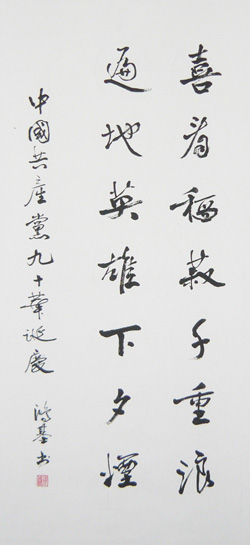 喜看稻菽千重浪
遍地英雄下夕煙
中國共產黨九十華誕慶
鴻基书